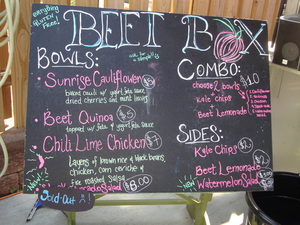 everything
GLUTEN
FREE!
BEET BOX
BOWLS:
Sunrise Cauliflower
based cauli w/ yogurt feta sauce
dried cherries and mint leaves
Beet Quinoa $5
topped w/ feta & yogurt feta sauce
Chili Lime Chicken $7
layers of brown rice & black beans,
chicken, corn ceviche &
fire roasted Salsa
NEW
Salad $8.00
Sold Out
COMBO: $10
choose 2 bowls
Kale Chips
Beet Lemonade
SIDES:
Kale Chips
Beet Lemonade
Watermelon Salad
NEW